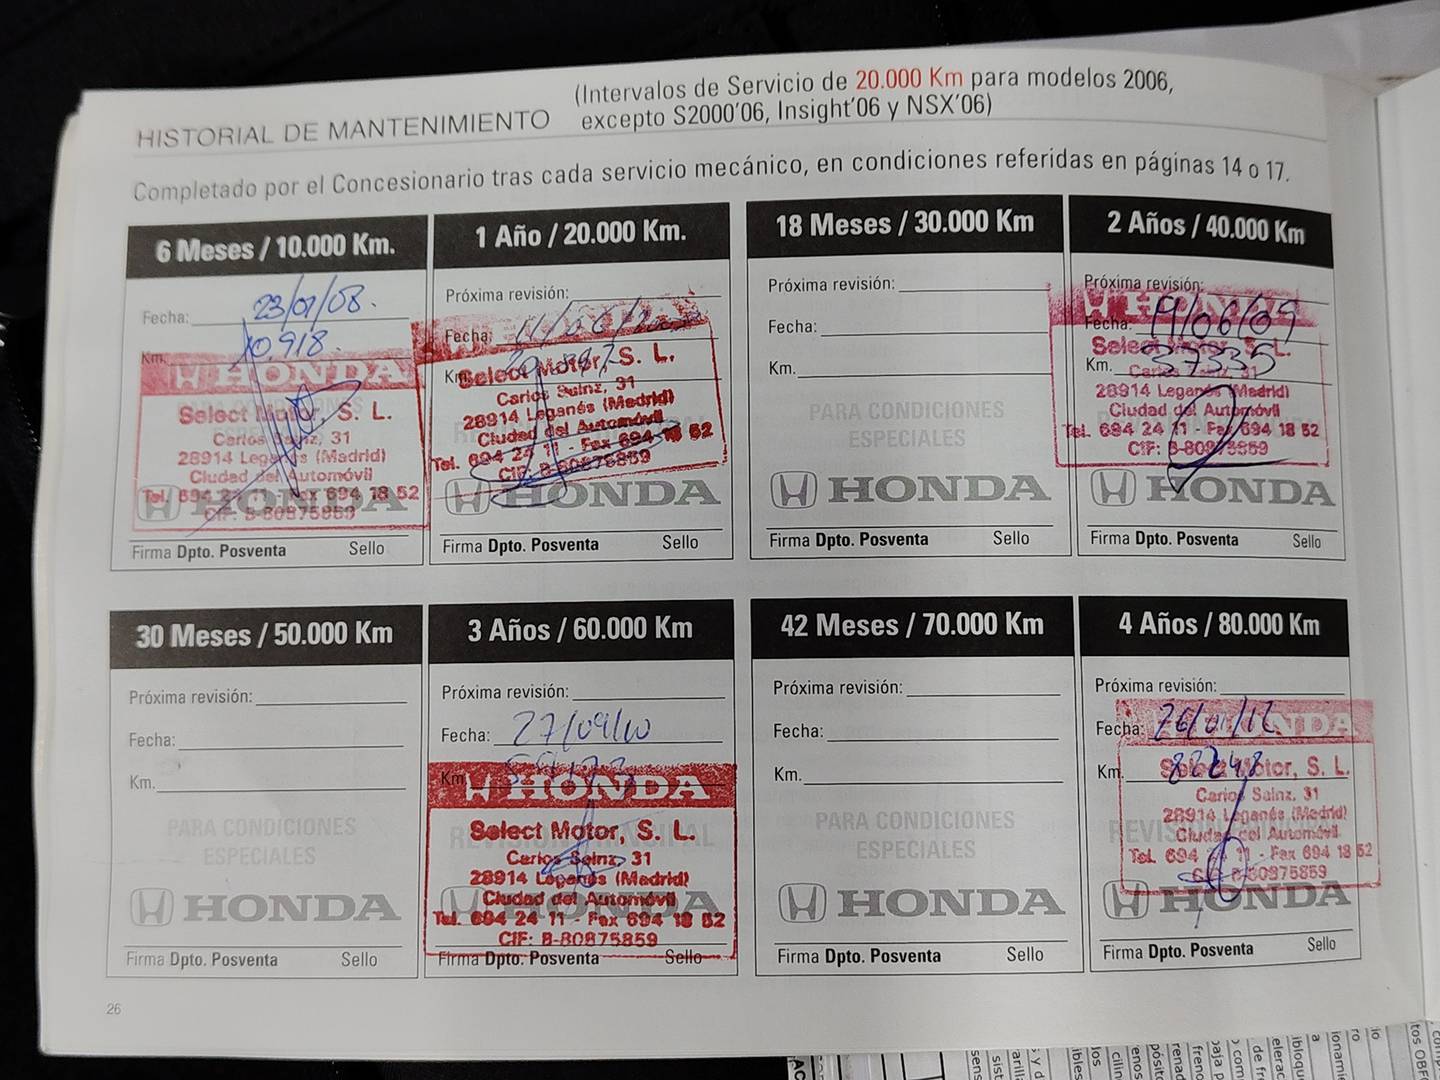 HISTORIAL DE MANTENIMIENTO
(Intervalos de Servicio de 20.000 Km para modelos 2006,
excepto S2000'06, Insight'06 y NSX'06)
Completado por el Concesionario tras cada servicio mecánico, en condiciones referidas en páginas 14 o 17.
6 Meses / 10.000 Km.
Fecha: 23/01/08.
Km. 10.918.
HONDA
Select Motor, S. L.
Carlos Sainz, 31
28914 Leganés (Madrid)
Ciudad del Automóvil
Tel. 694 24 11 - Fax 694 18 52
CIF: B-80875859
HONDA
Firma Dpto. Posventa Sello
1 Año / 20.000 Km.
Próxima revisión:
Fecha:
Km.
HONDA
Select Motor, S. L.
Carlos Sainz, 31
28914 Leganés (Madrid)
Ciudad del Automóvil
Tel. 694 24 11 - Fax 694 18 52
CIF: B-80875859
HONDA
Firma Dpto. Posventa Sello
18 Meses / 30.000 Km
Próxima revisión:
Fecha:
Km.
PARA CONDICIONES
ESPECIALES
HONDA
Firma Dpto. Posventa Sello
2 Años / 40.000 Km
Próxima revisión:
HONDA
Fecha: 19/06/09
Select Motor, S. L.
Km. 37335
Carlos Sainz, 31
28914 Leganés (Madrid)
Ciudad del Automóvil
Tel. 694 24 11 - Fax 694 18 52
CIF: B-80875859
HONDA
Firma Dpto. Posventa Sello
30 Meses / 50.000 Km
Próxima revisión:
Fecha:
Km.
PARA CONDICIONES
ESPECIALES
HONDA
Firma Dpto. Posventa Sello
3 Años / 60.000 Km
Próxima revisión:
Fecha: 27/09/10
Km.
HONDA
Select Motor, S. L.
REVISIÓN PRINCIPAL
Carlos Sainz, 31
28914 Leganés (Madrid)
HONDA
Ciudad del Automóvil
Tel. 694 24 11 - Fax 694 18 52
CIF: B-80875859
Firma Dpto. Posventa Sello
42 Meses / 70.000 Km
Próxima revisión:
Fecha:
Km.
PARA CONDICIONES
ESPECIALES
HONDA
Firma Dpto. Posventa Sello
4 Años / 80.000 Km
Próxima revisión:
HONDA
Fecha: 26/01/12
Km. 82248
Select Motor, S. L.
Carlos Sainz, 31
28914 Leganés (Madrid)
Ciudad del Automóvil
Tel. 694 24 11 - Fax 694 18 52
CIF: B-80875859
HONDA
Firma Dpto. Posventa Sello
26